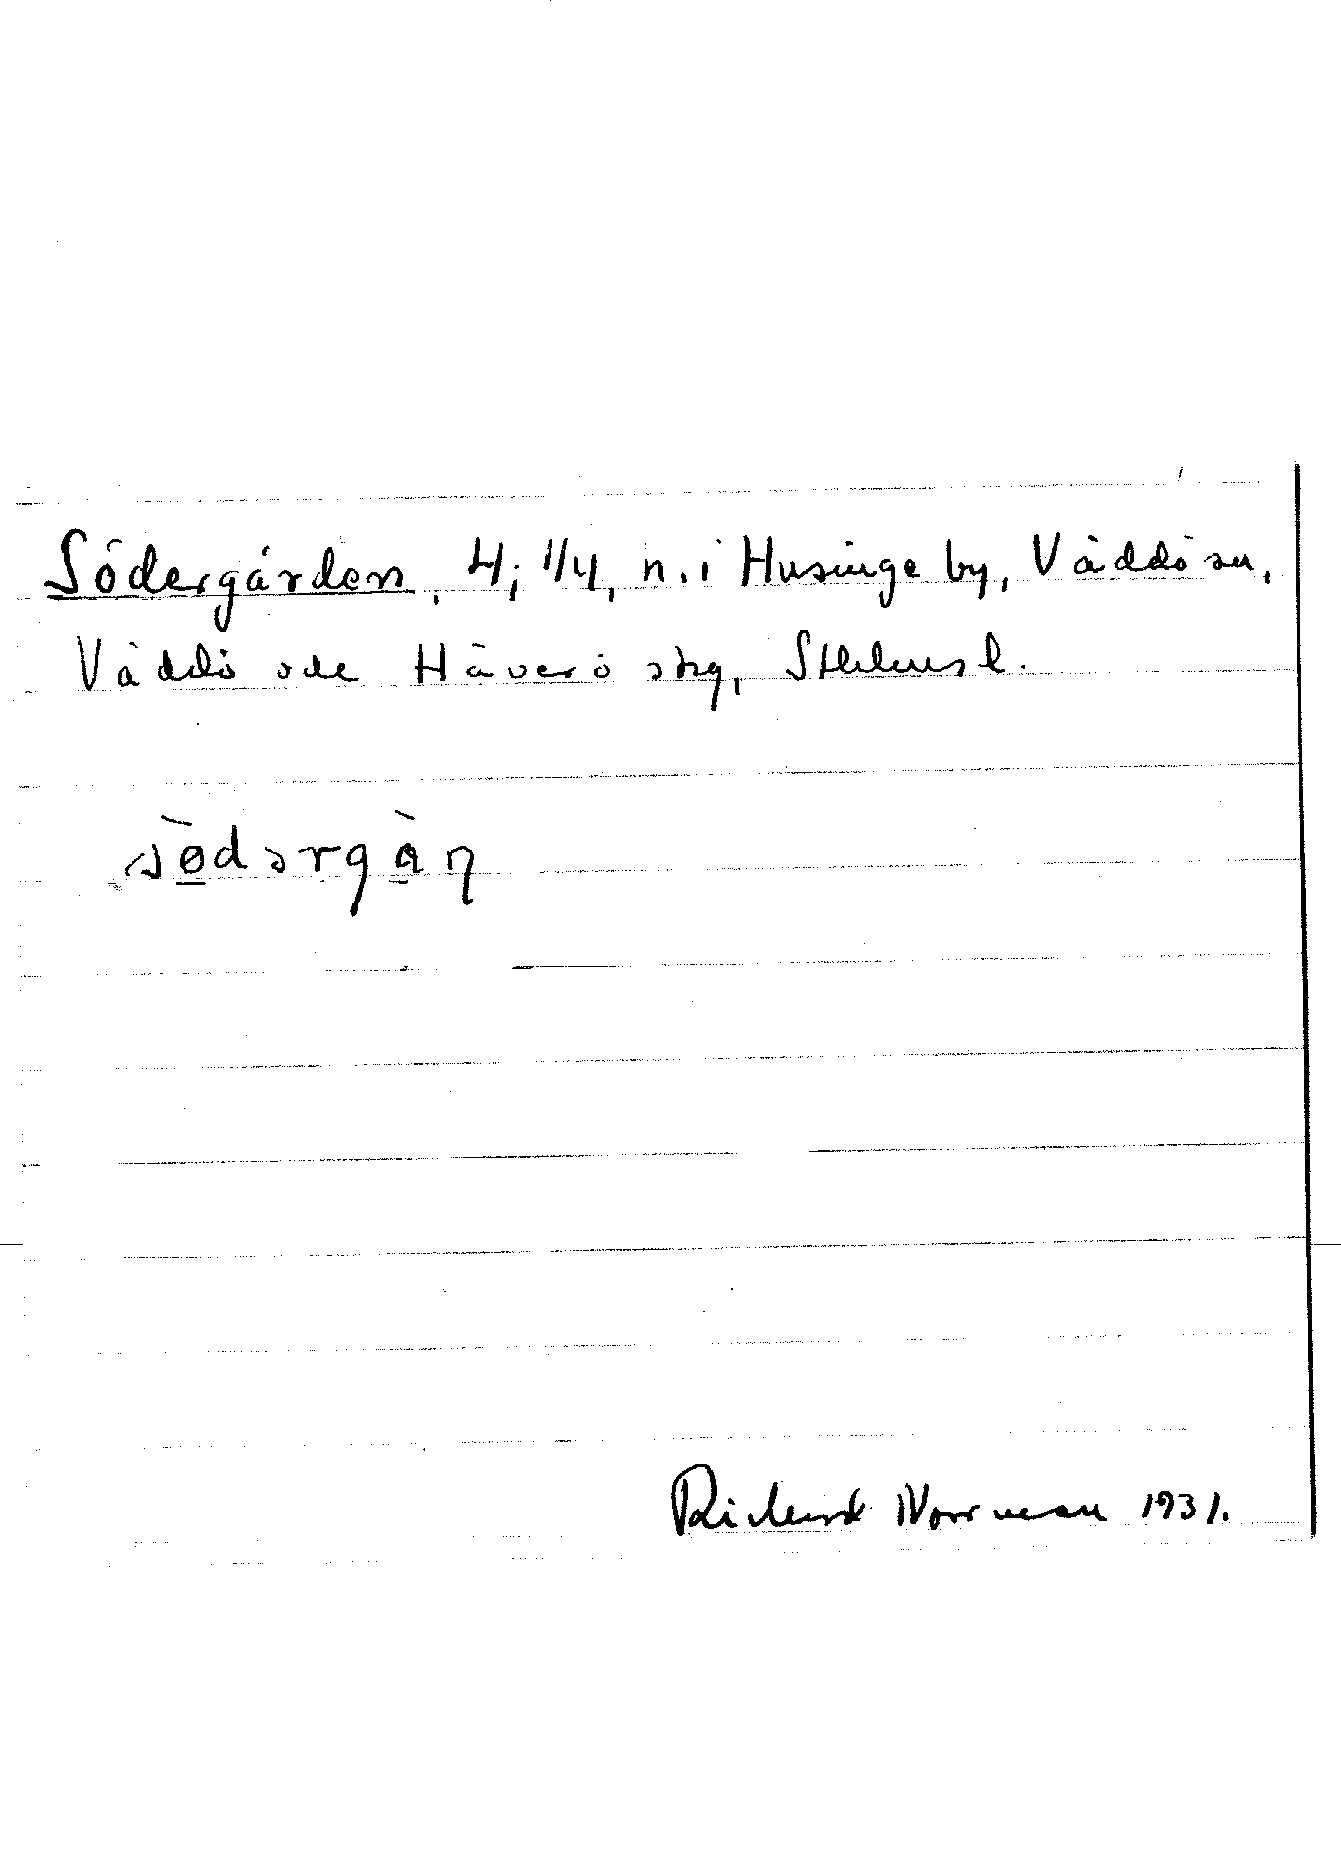 Södergården, H; 1/4, n. i Husinge by, Väddö sn,
Väddö och Häverö skg, Sthlms l.
sødərgån
Richard Norrman 1931.